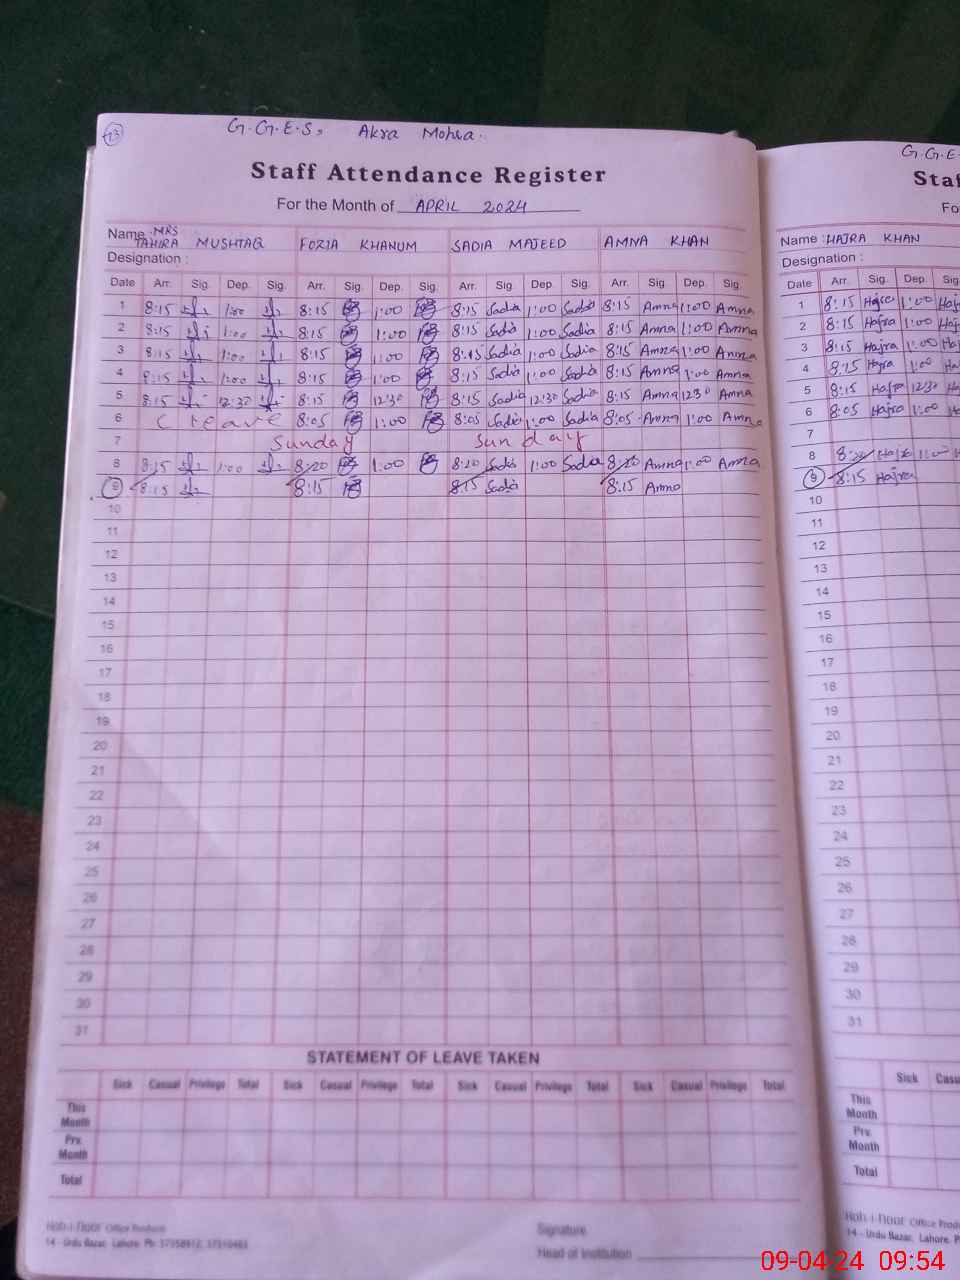 23
G.G.E.S, Akra Mohra.
Staff Attendance Register
For the Month of APRIL 2024
Name : MRS TAHIRA MUSHTAQ FOZIA KHANUM SADIA MAJEED AMNA KHAN
Designation :
Date Arr. Sig. Dep. Sig. Arr. Sig. Dep. Sig. Arr. Sig. Dep. Sig. Arr. Sig. Dep. Sig.
1 8:15 1:00 8:15 1:00 8:15 Sadia 1:00 Sadia 8:15 Amna 1:00 Amna
2 8:15 1:00 8:15 1:00 8:15 Sadia 1:00 Sadia 8:15 Amna 1:00 Amna
3 8:15 1:00 8:15 1:00 8:15 Sadia 1:00 Sadia 8:15 Amna 1:00 Amna
4 8:15 1:00 8:15 1:00 8:15 Sadia 1:00 Sadia 8:15 Amna 1:00 Amna
5 8:15 12:30 8:15 12:30 8:15 Sadia 12:30 Sadia 8:15 Amna 12:30 Amna
6 C leave 8:05 1:00 8:05 Sadia 1:00 Sadia 8:05 Amna 1:00 Amna
7 Sunday Sunday
8 8:15 1:00 8:20 1:00 8:20 Sadia 1:00 Sadia 8:20 Amna 1:00 Amna
9 8:15 8:15 8:15 Sadia 8:15 Amna
10
11
12
13
14
15
16
17
18
19
20
21
22
23
24
25
26
27
28
29
30
31
STATEMENT OF LEAVE TAKEN
Sick Casual Privilege Total Sick Casual Privilege Total Sick Casual Privilege Total Sick Casual Privilege Total
This Month
Prv. Month
Total
Office Products
14 - Urdu Bazar, Lahore. Ph:
Signature
Head of Institution
G.G.E
Staf
Fo
Name : HAJRA KHAN
Designation :
Date Arr. Sig. Dep. Sig
1 8:15 Hajra 1:00 Haj
2 8:15 Hajra 1:00 Haj
3 8:15 Hajra 1:00 Ha
4 8:15 Hajra 1:00 Ha
5 8:15 Hajra 12:30 Ha
6 8:05 Hajra 1:00 Ha
7
8 8:20 Hajra 1:00 H
9 8:15 Hajra
10
11
12
13
14
15
16
17
18
19
20
21
22
23
24
25
26
27
28
29
30
31
Sick Casu
This Month
Prv. Month
Total
Office Prod
14 - Urdu Bazar, Lahore. P
09-04-24 09:54